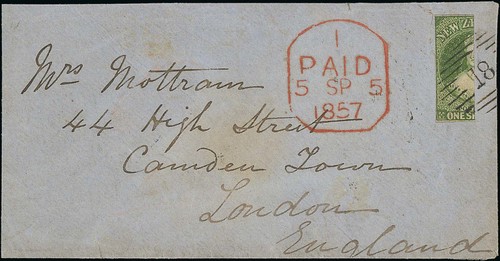 1
PAID
5 SP 5
1857
NEW ZE
ONE S
18
Mrs Mottram
44 High Street
Camden Town
London
England